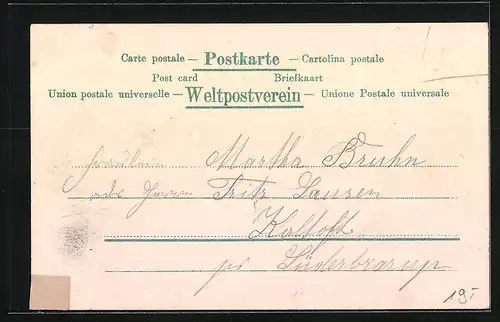 Carte postale — Postkarte — Cartolina postale
Post card Briefkaart
Union postale universelle — Weltpostverein — Unione Postale universale
Fräulein Martha Bruhn
oder Herrn Fritz Lauzen
Kaltoft
pr Süderbrarup
19.-